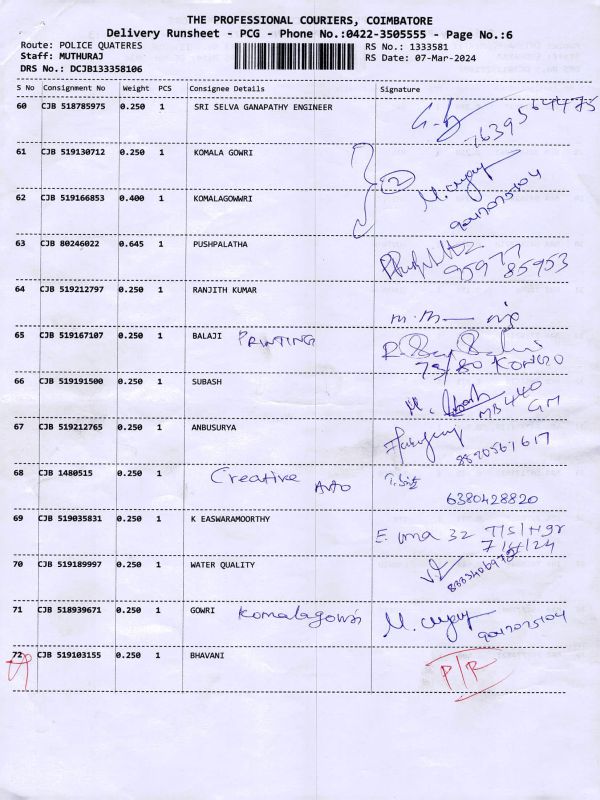 THE PROFESSIONAL COURIERS, COIMBATORE
Delivery Runsheet - PCG - Phone No.:0422-3505555 - Page No.:6
Route: POLICE QUATERES RS No.: 1333581
Staff: MUTHURAJ RS Date: 07-Mar-2024
DRS No.: DCJB133358106
S No Consignment No Weight PCS Consignee Details Signature
60 CJB 518785975 0.250 1 SRI SELVA GANAPATHY ENGINEER
7639564475
61 CJB 519130712 0.250 1 KOMALA GOWRI
2
62 CJB 519166853 0.400 1 KOMALAGOWWRI
63 CJB 80246022 0.645 1 PUSHPALATHA
95977
85953
64 CJB 519212797 0.250 1 RANJITH KUMAR
65 CJB 519167107 0.250 1 BALAJI PRINTING
KONGO
66 CJB 519191500 0.250 1 SUBASH
MB440
GM
67 CJB 519212765 0.250 1 ANBUSURYA
8820561617
68 CJB 1480515 0.250 1 Creative Auto
6380428820
69 CJB 519035831 0.250 1 K EASWARAMOORTHY
E. uma 32
70 CJB 519189997 0.250 1 WATER QUALITY
71 CJB 518939671 0.250 1 GOWRI Komalagowri
72 CJB 519103155 0.250 1 BHAVANI
P/R